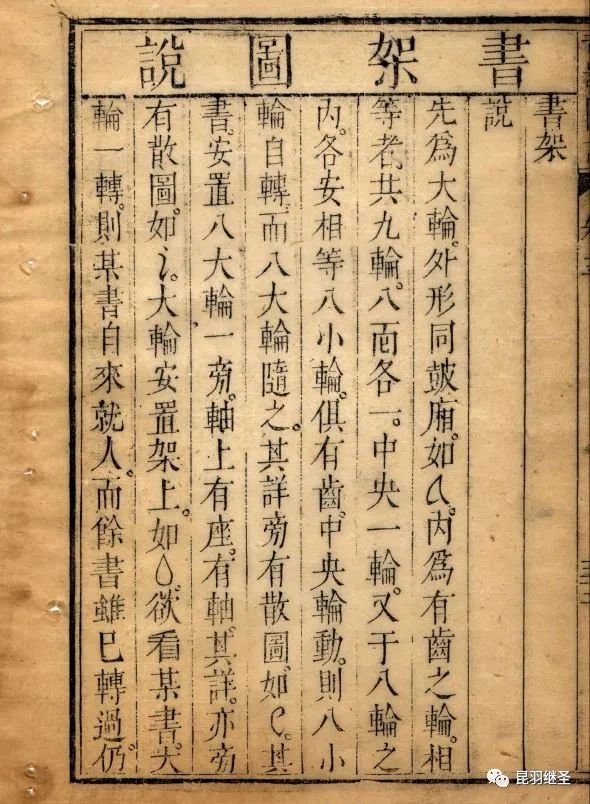 書架圖說
書架
說
先爲大輪。外形同鼓廂。如。内爲有齒之輪。相
等者。共九輪。八面各一。中央一輪。又于八輪之
内。各安相等八小輪。俱有齒。中央輪動。則八小
輪自轉。而八大輪隨之。其詳旁有散圖。如。其
書。安置八大輪一旁。軸上有座。有軸。其詳。亦旁
有散圖。如。大輪安置架上。如。欲看某書。大
輪一轉。則某書自來就人。而餘書雖已轉過。仍
昆羽继圣